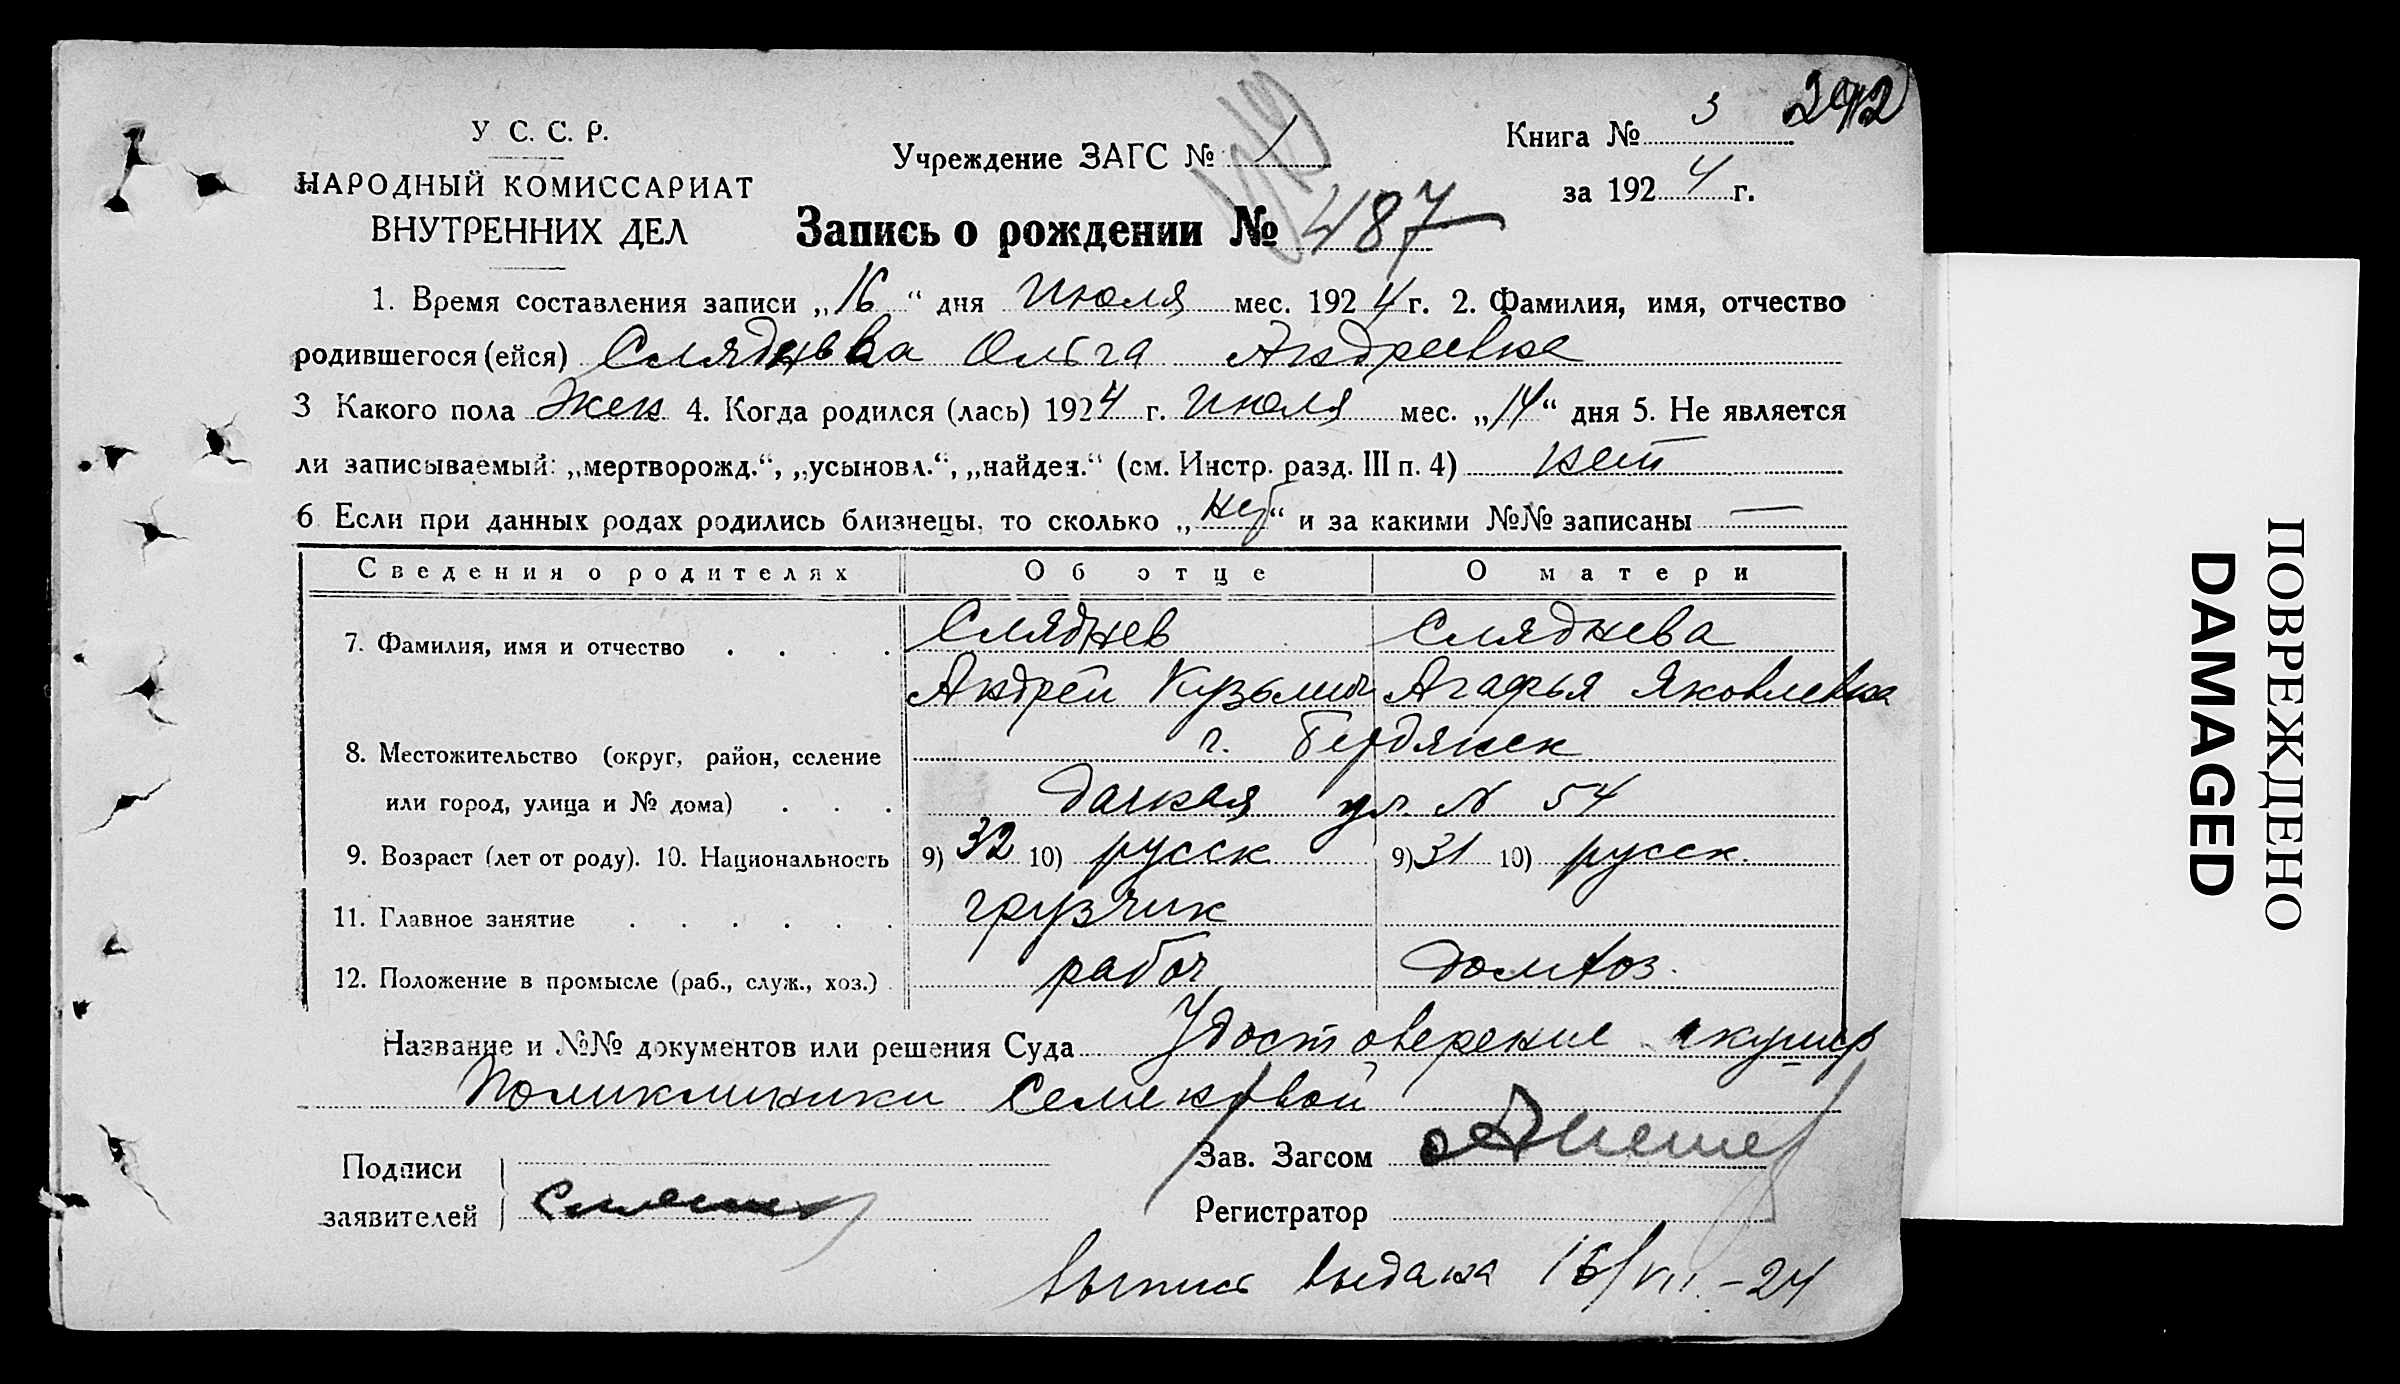 292
У С. С. Р.
НАРОДНЫЙ КОМИССАРИАТ
ВНУТРЕННИХ ДЕЛ
Учреждение ЗАГС № 1
Книга № 3
за 1924 г.
Запись о рождении № 487
1. Время составления записи „16“ дня Июля мес. 1924 г. 2. Фамилия, имя, отчество
родившегося (ейся) Сляднева Ольга Андреевна
3 Какого пола жен 4. Когда родился (лась) 1924 г. Июля мес. „14“ дня 5. Не является
ли записываемый: „мертворожд.“, „усыновл.“, „найден.“ (см. Инстр. разд. III п. 4) нет
6 Если при данных родах родились близнецы, то сколько „нет“ и за какими №№ записаны —
Сведения о родителях Об отце О матери
7. Фамилия, имя и отчество . . . . Сляднев Сляднева
Андрей Кузьмич Агафья Яковлевна
8. Местожительство (округ, район, селение г. Бердянск
или город, улица и № дома) . . . Дачная ул. N 54
9. Возраст (лет от роду). 10. Национальность 9) 32 10) русск 9) 31 10) русск.
11. Главное занятие . . . . . . грузчик
12. Положение в промысле (раб., служ., хоз.) . рабоч домхоз.
Название и №№ документов или решения Суда Удостоверение акушер
Поликлиники Семеновой
Подписи
заявителей
Зав. Загсом
Регистратор
выпись выдана 16/VII.-24
ПОВРЕЖДЕНО
DAMAGED